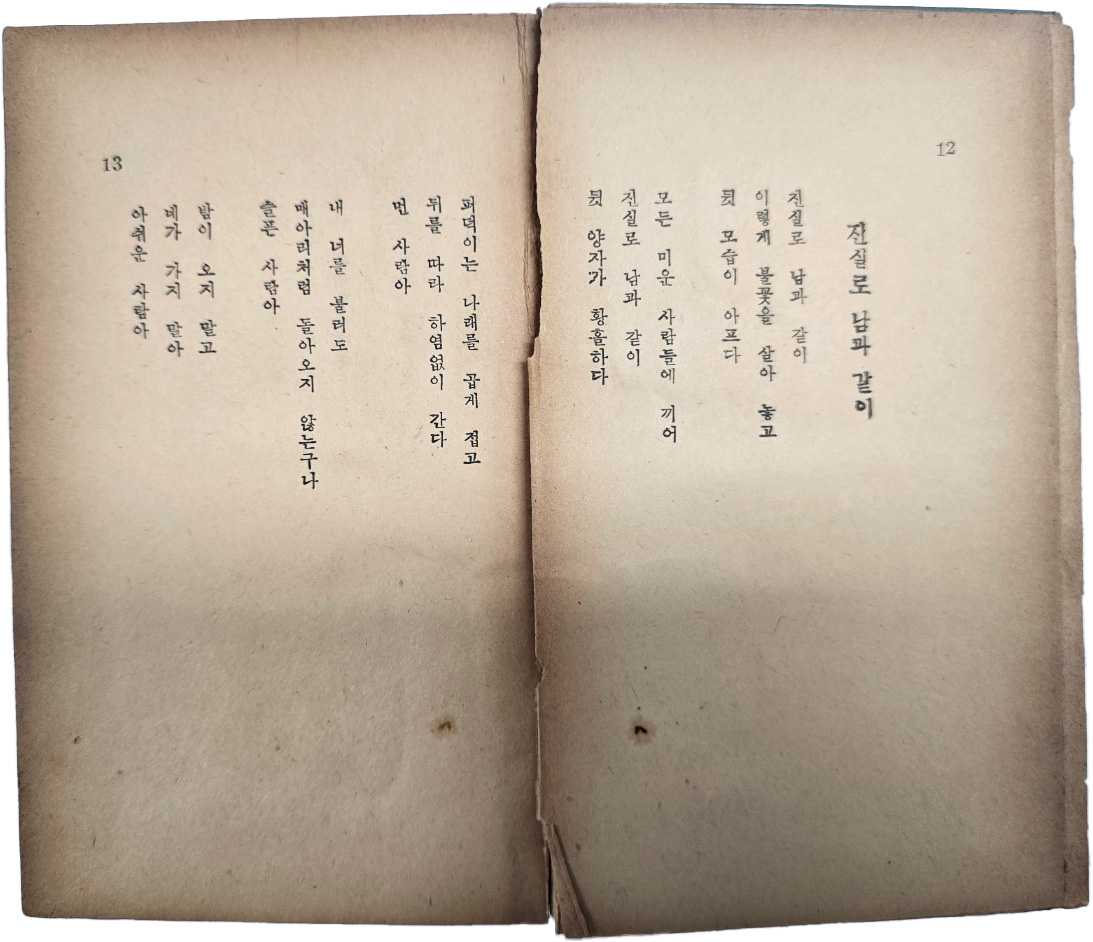 12
진실로 남과 같이
진실로 남과 같이
이렇게 불꽃을 살아 놓고
뒷 모습이 아프다
모든 미운 사람들에 끼어
진실로 남과 같이
뒷 양자가 황홀하다
퍼덕이는 나래를 곱게 접고
뒤를 따라 하염없이 간다
먼 사람아
내 너를 불러도
매아리처럼 돌아오지 않는구나
슬픈 사람아
밤이 오지 말고
네가 가지 말아
아쉬운 사람아
13